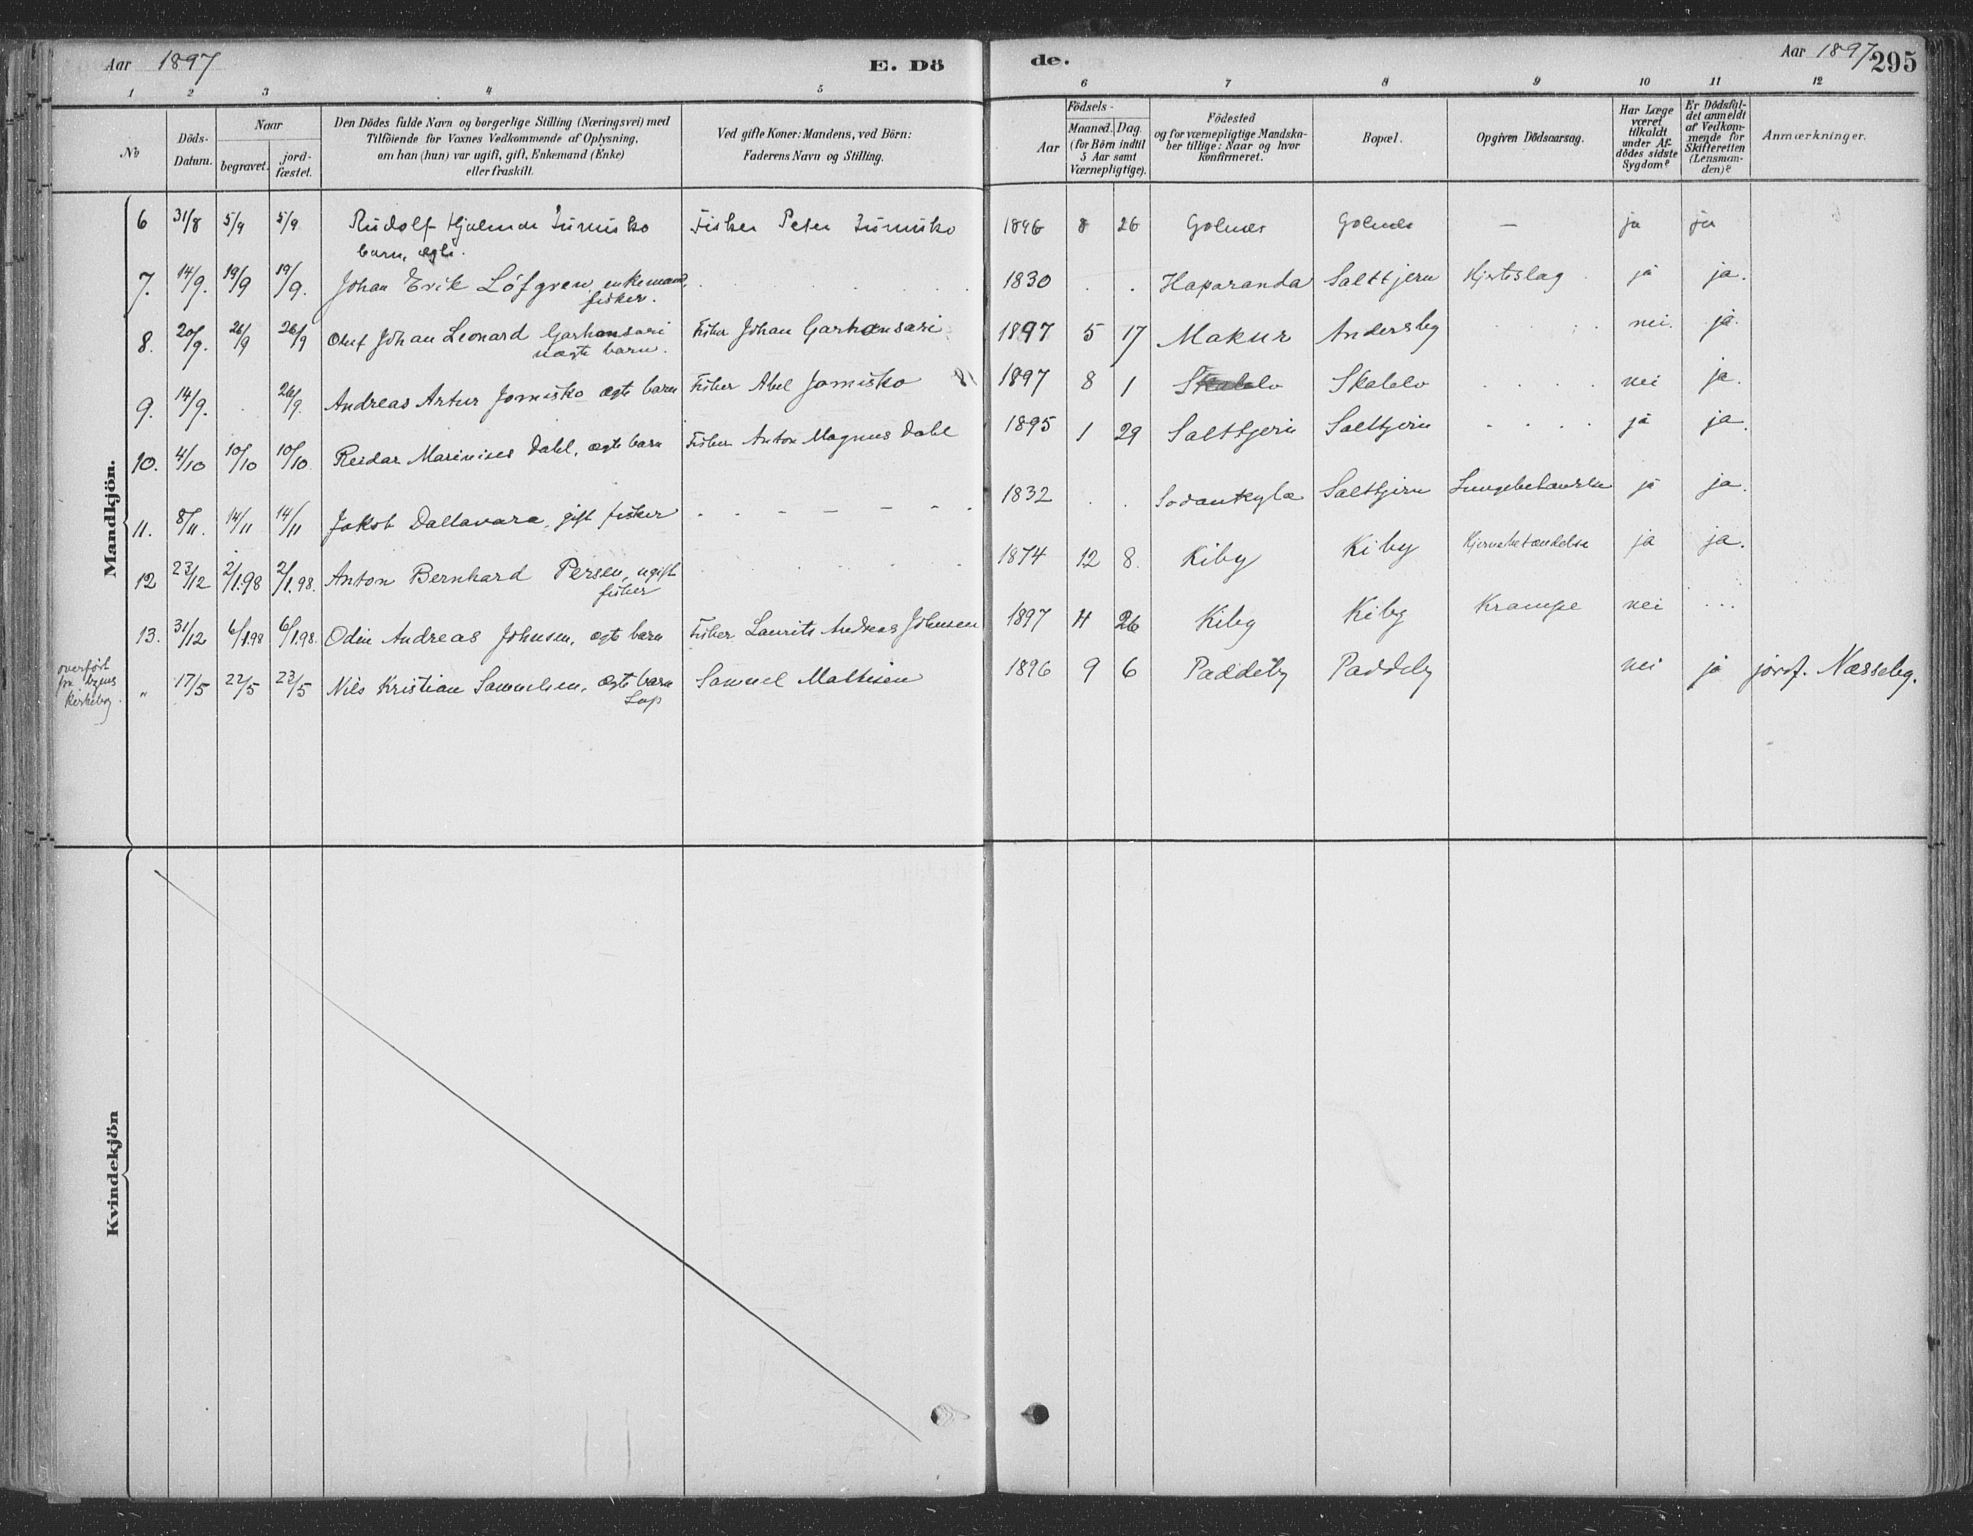 Aar 1897
E. Dö
de.
Aar 1897
295
1 2 3 4 5 6 7 8 9 10 11 12
No
Döds-
Datum.
Naar
begravet.
jord-
fæstet.
Den Dödes fulde Navn og borgerlige Stilling (Næringsvei) med
Tilföiende for Voxnes Vedkommende af Oplysning,
om han (hun) var ugift, gift, Enkemand (Enke)
eller fraskilt.
Ved gifte Koner: Mandens, ved Börn:
Faderens Navn og Stilling.
Födsels-
Aar
Maaned. Dag
(for Börn indtil
5 Aar samt
Værnepligtige).
Födested
og for værnepligtige Mandska-
ber tillige: Naar og hvor
Konfirmeret.
Bopæl.
Opgiven Dödsaarsag.
Har Læge
været
tilkaldt
under Af-
dödes sidste
Sygdom?
Er Dödsfal-
det anmeldt
af Vedkom-
mende for
Skifteretten
(Lensman-
den)?
Anmærkninger.
Mandkjön.
6 31/8 5/9 5/9 Rudolf Hjalmar Fisker Peter 1896 8 26 Golnes Golnes — ja ja
barn, ægte.
7. 14/9. 19/9 19/9. Johan Erik Löfgren, enkemand, 1830 . . Haparanda Saltkjern Hjerteslag ja ja.
fisker.
8. 20/9. 26/9 26/9 Oluf Johan Leonard Garhansari Fisker Johan Garhansari 1897 5 17 Makur Andersby nei. ja.
uægte barn.
9. 14/9. . 26/9. Andreas Artur Jomisko ægte barn Fisker Abel Jomisko 1897 8 1 Skalelv Skalelv nei ja.
10. 4/10 10/10 10/10 Reidar Marinius Dahl, ægte barn Fisker Anton Magnus Dahl 1895 1 29 Saltkjern Saltkjern ja ja.
11. 8/11. 14/11 14/11 Jakob Dallavara, gift fisker 1832 . . Sodankyla Saltkjern Lungebetændelse ja ja.
12 23/12 2/1.98 2/1.98. Anton Bernhard Persen, ugift 1874 12 8. Kiby Kiby Hjernebetændelse ja ja.
fisker
13. 31/12 6/1.98 6/1.98. Odin Andreas Johnsen, ægte barn Fisker Laurits Andreas Johnsen 1897 4 26 Kiby Kiby Krampe nei ...
overført
fra byens
Kirkebog.
" 17/5 22/5 23/5 Nils Kristian Samuelsen, ægte barn Samuel Mathisen 1896 9 6 Paddeby Paddeby nei ja jordf. Næsseby.
Lap
Kvindekjön